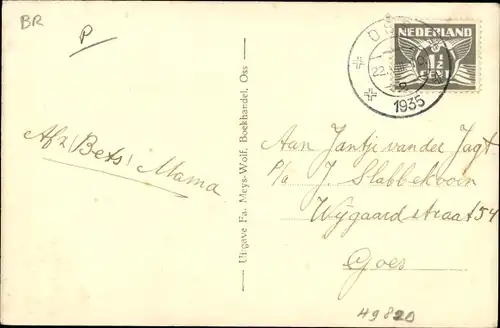 BR
P
Afz. Bets, Mama
Uitgave Fa. Meys-Wolf, Boekhandel, Oss
NEDERLAND
1½
CENT
22.
1935
Aan Jantje van der Jagt
P/a J. Slabbekoorn
Wijgaardstraat 54
Goes
49820